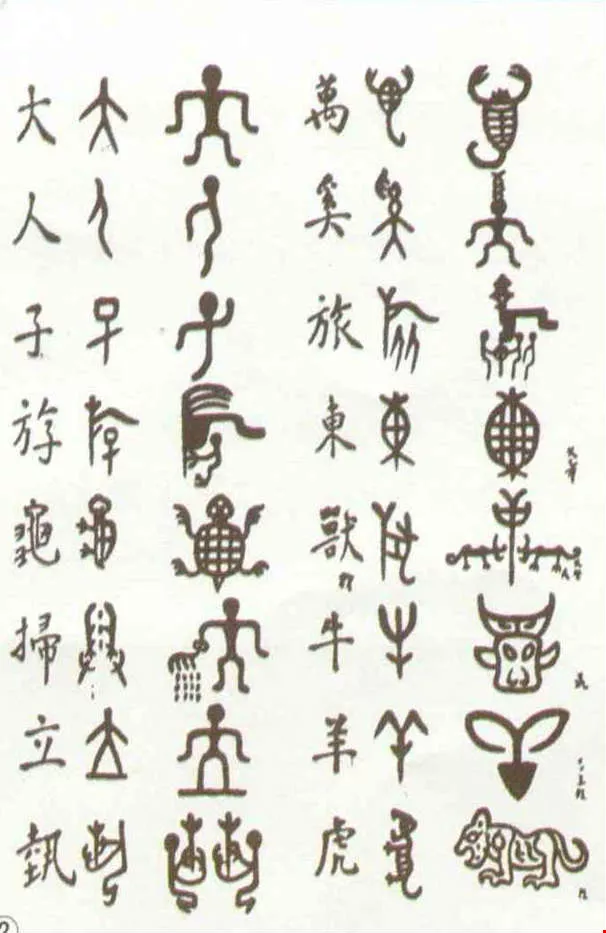 大 萬
人 奚
子 旅
游 東
龜 獸
掃 牛
立 羊
執 虎
2